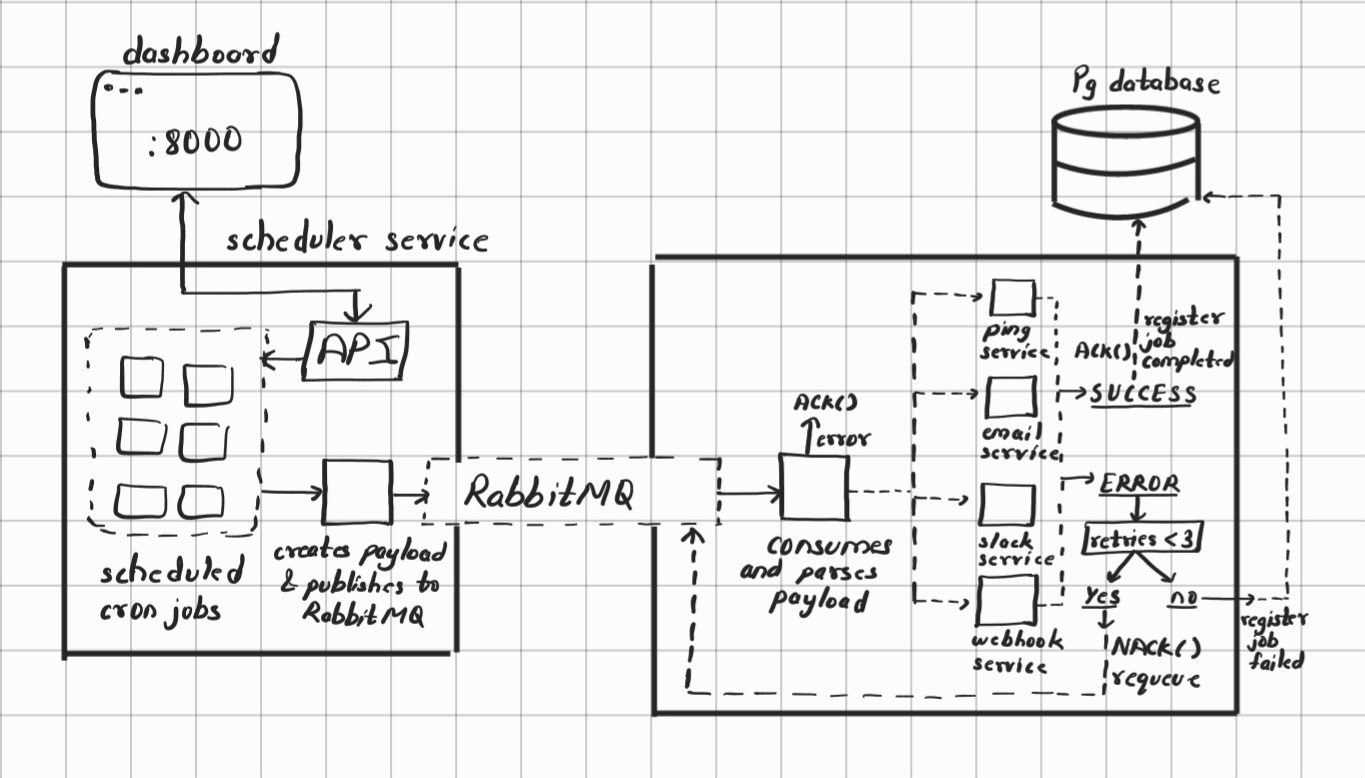 dashboard
:8000
Pg database
scheduler service
API
scheduled
cron jobs
creates payload
& publishes to
RabbitMQ
RabbitMQ
ACK()
error
consumes
and parses
payload
ping
service
email
service
slack
service
webhook
service
ACK()
register
job
completed
SUCCESS
ERROR
retries <3
Yes
no
NACK()
requeue
register
job
failed